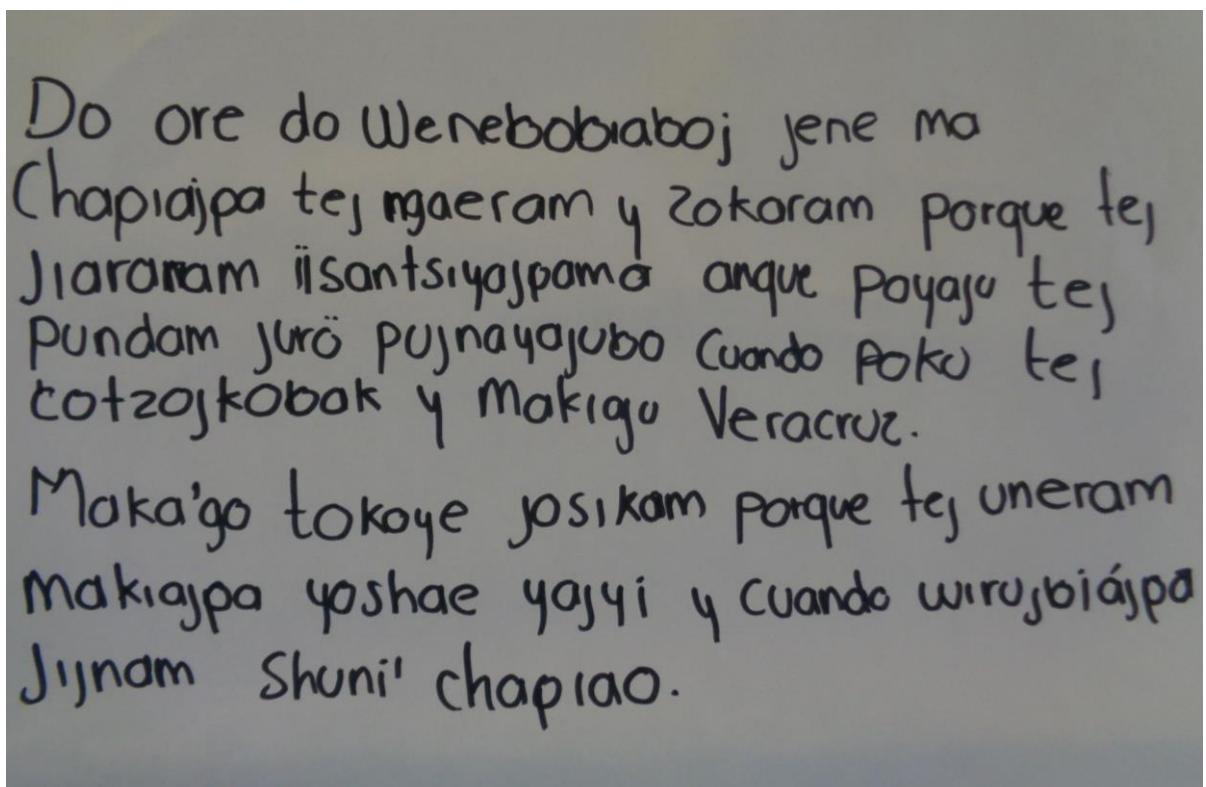 Do ore do Wenebobiaboj jene ma
Chapiajpa tej ngaeram y zokoram porque tej
Jiararam iisantsiyajpamö anque poyaju tej
pundam jurö pujnayajubo cuando poku tej
cotzojkobak y makigu Veracruz.
Maka'go tokoye josikam porque tej uneram
makiajpa yoshae yajyi y cuando wirujbiájpa
Jijnam Shuni' chapiao.